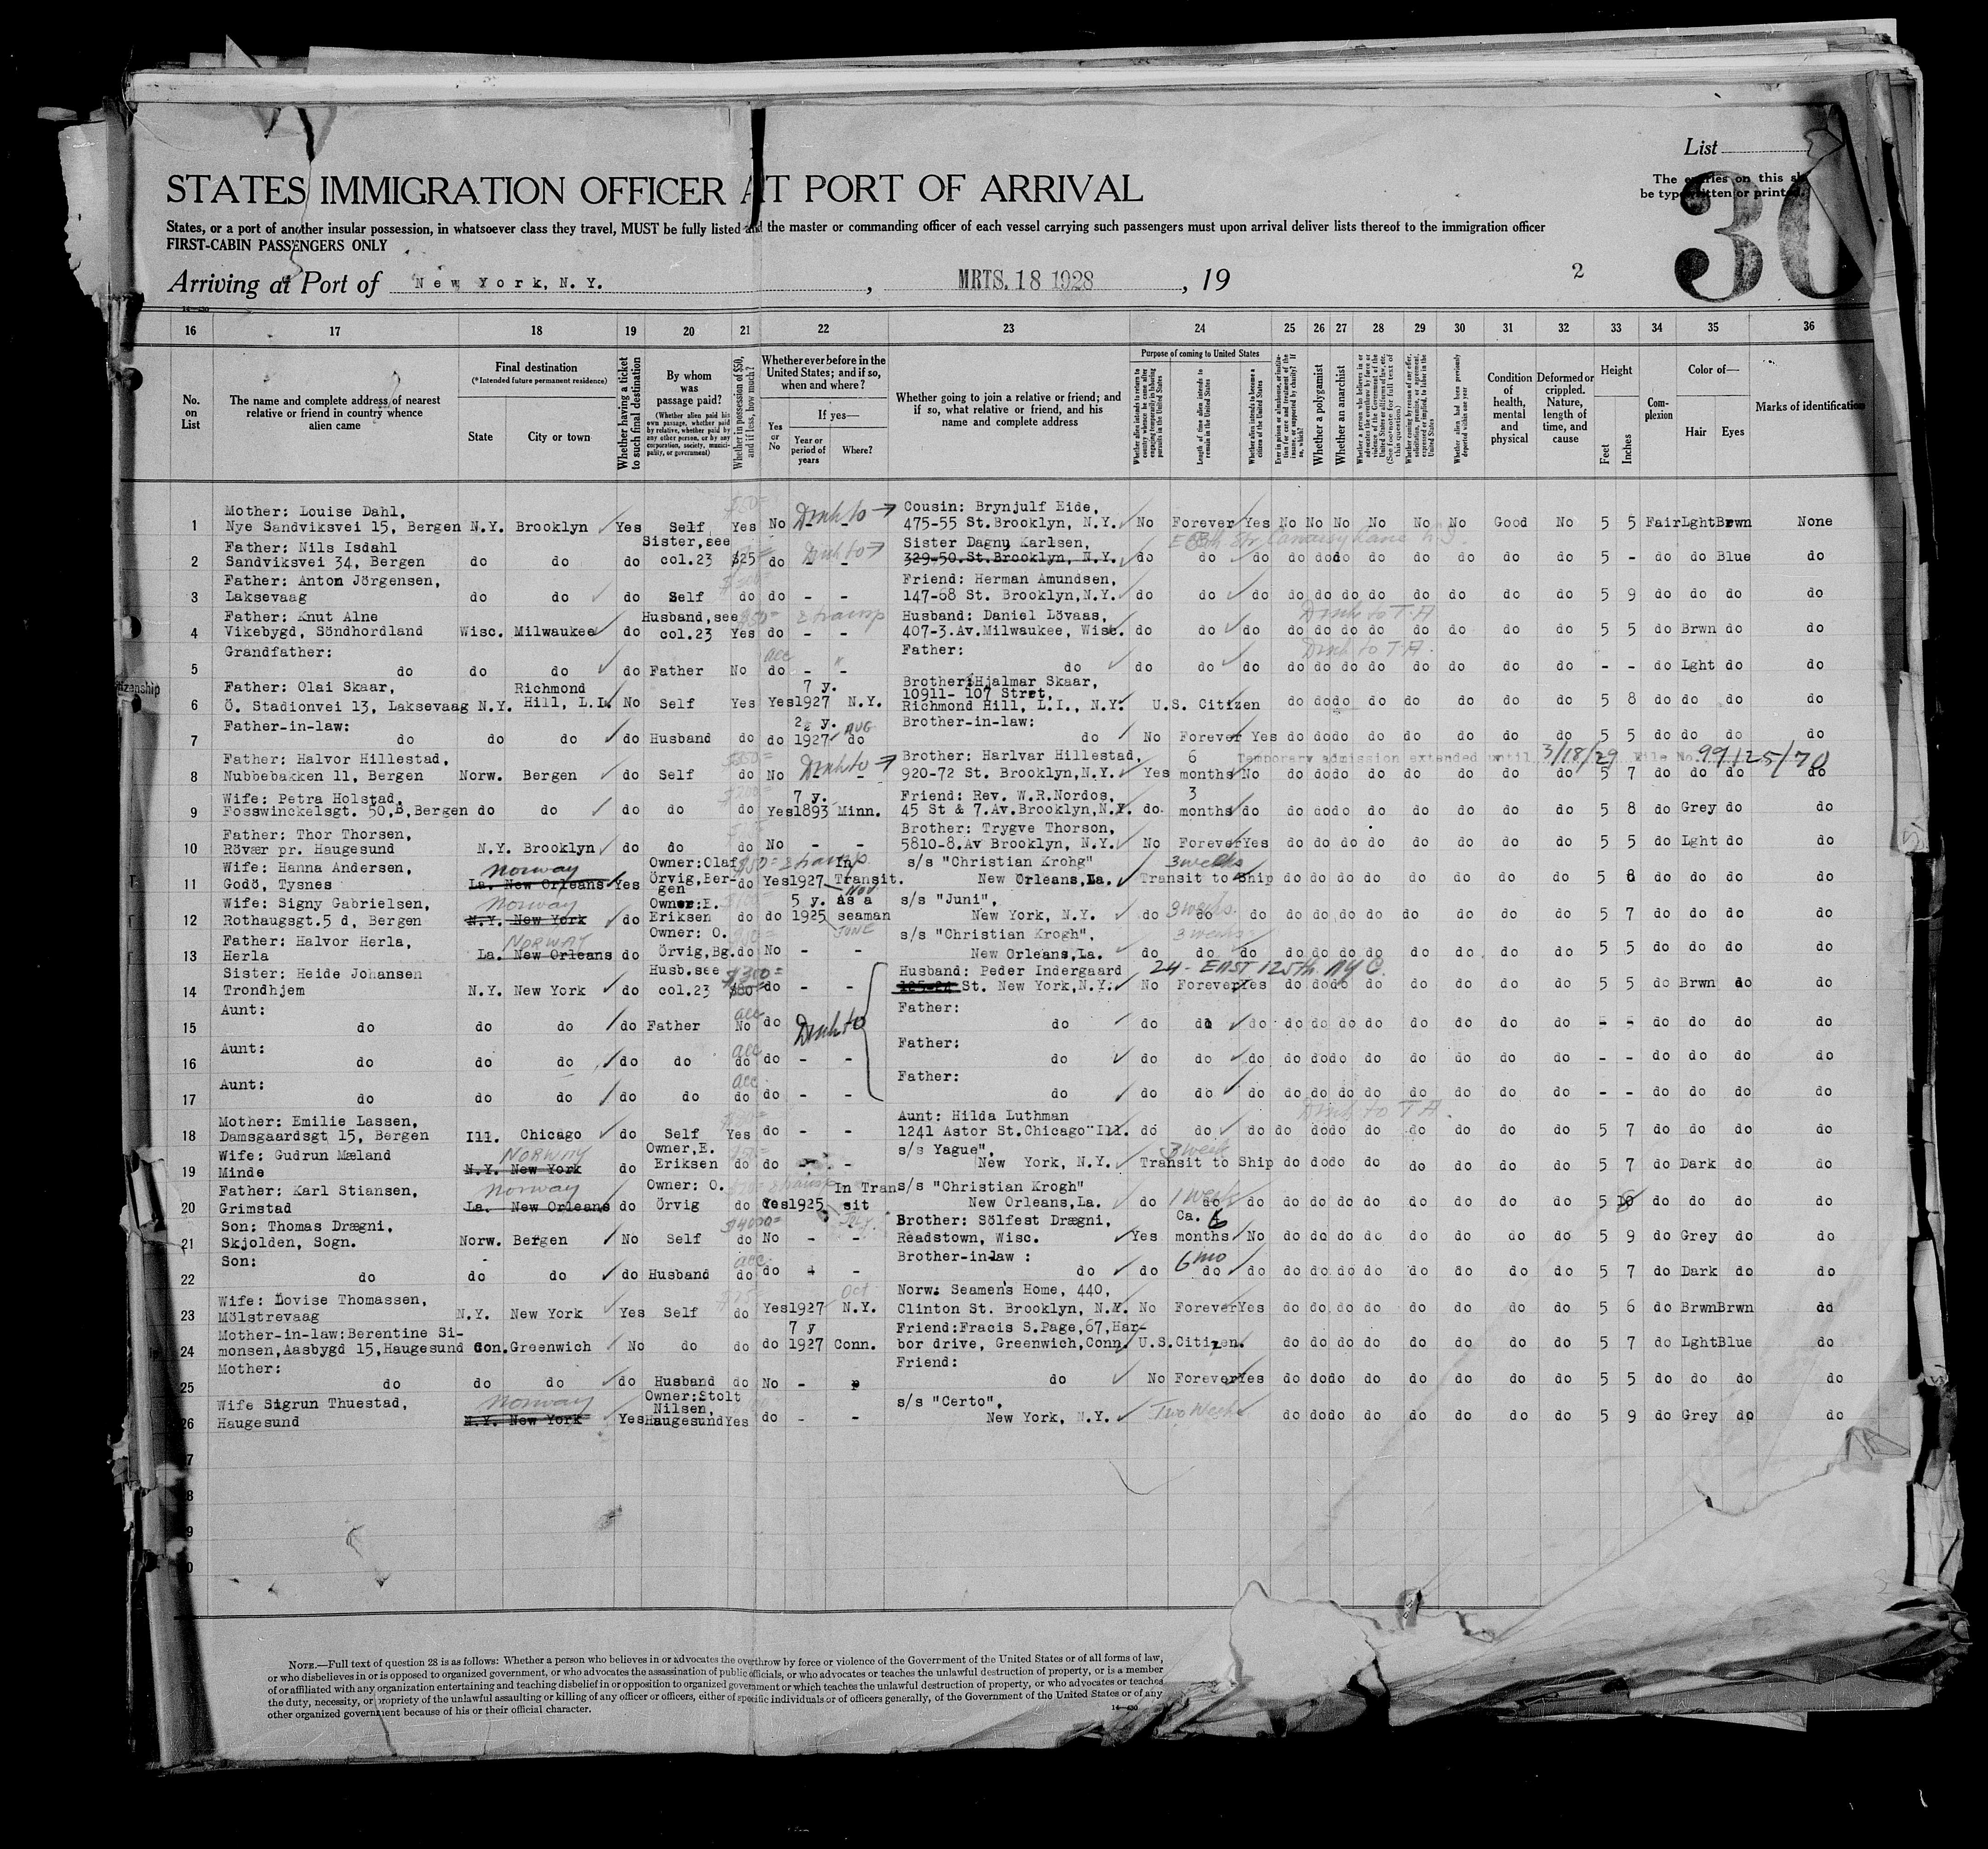 List
The entries on this sh
be typewritten or printed.
30
STATES IMMIGRATION OFFICER AT PORT OF ARRIVAL
States, or a port of another insular possession, in whatsoever class they travel, MUST be fully listed and the master or commanding officer of each vessel carrying such passengers must upon arrival deliver lists thereof to the immigration officer
FIRST-CABIN PASSENGERS ONLY
Arriving at Port of New York, N. Y. , MRTS. 18 1928 , 19
2
16 17 18 19 20 21 22 23 24 25 26 27 28 29 30 31 32 33 34 35 36
No. on List
The name and complete address of nearest relative or friend in country whence alien came
Final destination
(*Intended future permanent residence)
State City or town
Whether having a ticket to such final destination
By whom was passage paid?
(Whether alien paid his own passage, whether paid by relative, whether paid by any other person, or by any corporation, society, municipality, or government)
Whether in possession of $50, and if less, how much?
Whether ever before in the United States; and if so, when and where?
Yes or No
If yes—
Year or period of years
Where?
Whether going to join a relative or friend; and if so, what relative or friend, and his name and complete address
Purpose of coming to United States
Whether alien intends to return to country whence he came after engaging temporarily in laboring pursuits in the United States
Length of time alien intends to remain in the United States
Whether alien intends to become a citizen of the United States
Ever in prison or almshouse, or institution for care and treatment of the insane, or supported by charity? If so, which?
Whether a polygamist
Whether an anarchist
Whether a person who believes in or advocates the overthrow by force or violence of the Government of the United States or all forms of law, etc. (See footnote for full text of this question)
Whether coming by reason of any offer, solicitation, promise, or agreement, expressed or implied, to labor in the United States
Whether alien had been previously deported within one year
Condition of health, mental and physical
Deformed or crippled. Nature, length of time, and cause
Height
Feet Inches
Complexion
Color of—
Hair Eyes
Marks of identification
Mother: Louise Dahl, Cousin: Brynjulf Eide,
1 Nye Sandviksvei 15, Bergen N.Y. Brooklyn Yes Self Yes No - - 475-55 St.Brooklyn, N.Y. No Forever Yes No No No No No No Good No 5 5 Fair Lght Brwn None
Father: Nils Isdahl Sister, see Sister Dagny Karlsen,
2 Sandviksvei 34, Bergen do do do col.23 $25 do - - 329-50.St.Brooklyn, N.Y. do do do do do do do do do do do 5 - do do Blue do
Father: Anton Jörgensen, Friend: Herman Amundsen,
3 Laksevaag do do do Self do do - - 147-68 St. Brooklyn,N.Y. do do do do do do do do do do do 5 9 do do do do
Father: Knut Alne Husband,see Husband: Daniel Lövaas,
4 Vikebygd, Söndhordland Wisc. Milwaukee do col.23 Yes do - - 407-3.Av.Milwaukee, Wisc. do do do do do do do do do do do 5 5 do Brwn do do
Grandfather: Father:
5 do do do do Father No do - - do do do do do do do do do do do do - - do Lght do do
izenship
Father: Olai Skaar, Richmond 7 y. Brother:Hjalmar Skaar,
10911- 107 Stret,
6 Ö. Stadionvei 13, Laksevaag N.Y. Hill, L.I. No Self Yes Yes 1927 N.Y. Richmond Hill, L.I., N.Y. U.S. Citizen do do do do do do do do 5 8 do do do do
Father-in-law: 2½ y. AUG Brother-in-law:
7 do do do do Husband do do 1927 do do No Forever Yes do do do do do do do do 5 5 do do do do
Father: Halvor Hillestad, Brother: Harlvar Hillestad, 6 Temporary admission extended until 3/18/29 File No. 99125/70
8 Nubbebakken 11, Bergen Norw. Bergen do Self do No - - 920-72 St. Brooklyn,N.Y. Yes months No do do do do do do do do 5 7 do do do do
Wife: Petra Holstad, 7 y. Friend: Rev. W.R.Nordos, 3
9 Fosswinckelsgt. 50,B,Bergen do do do do do Yes 1893 Minn. 45 St & 7.Av.Brooklyn,N.Y. do months do do do do do do do do do 5 8 do Grey do do
Father: Thor Thorsen, Brother: Trygve Thorson,
10 Rövær pr. Haugesund N.Y. Brooklyn do do do No - - 5810-8.Av Brooklyn, N.Y. No Forever Yes do do do do do do do do 5 5 do Lght do do
Wife: Hanna Andersen, Norway Owner:Olaf In s/s "Christian Krohg" 3 weeks
11 Godö, Tysnes La. New Orleans Yes Örvig,Bergen do Yes 1927 Transit. New Orleans,La. Transit to Ship do do do do do do do do 5 8 do do do do
Wife: Signy Gabrielsen, Norway Owner:E. 5 y. as a NOV s/s "Juni",
12 Rothaugsgt.5 d, Bergen N.Y. New York do Eriksen do do 1925 seaman New York, N.Y. do do 3 weeks do do do do do do do do do 5 7 do do do do
Father: Halvor Herla, NORWAY Owner: O. JUNE s/s "Christian Krogh", 3 weeks
13 Herla La. New Orleans do Örvig,Bg. do No - - New Orleans,La. do do do do do do do do do do do 5 5 do do do do
Sister: Heide Johansen Husb.see $300= Husband: Peder Indergaard 24 - EAST 125th NYC.
14 Trondhjem N.Y. New York do col.23 do - - St. New York,N.Y. No Forever Yes do do do do do do do do 5 5 do Brwn do do
Aunt: acc Father:
15 do do do do Father No do do do do do do do do do do do do do - - do do do do
Aunt: acc Father:
16 do do do do do do do - - do do do do do do do do do do do do - - do do do do
Aunt: acc Father:
17 do do do do do do do - - do do do do do do do do do do do do - - do do do do
Mother: Emilie Lassen, Aunt: Hilda Luthman
18 Damsgaardsgt 15, Bergen Ill. Chicago do Self Yes do - - 1241 Astor St.Chicago Ill. do do do do do do do do do do do 5 7 do do do do
Wife: Gudrun Mæland NORWAY Owner,E. s/s Yague", 3 week
19 Minde N.Y. New York do Eriksen do do - - New York, N.Y. Transit to Ship do do do do do do do do 5 7 do Dark do do
Father: Karl Stiansen, Norway Owner: O. In Tran s/s "Christian Krogh"
20 Grimstad La. New Orleans do Örvig do Yes 1925 sit New Orleans,La. do 1 week do do do do do do do do do do 5 10 do do do do
Son: Thomas Drægni, Brother: Sölfest Drægni, Ca. 6
21 Skjolden, Sogn. Norw. Bergen No Self do No - - Readstown, Wisc. Yes months No do do do do do do do do 5 9 do Grey do do
Son: acc Brother-in-law : 6 mo
22 do do do do Husband do do - - do do do do do do do do do do do do 5 7 do Dark do do
Wife: Lovise Thomassen, Oct Norw. Seamen's Home, 440,
23 Mölstrevaag N.Y. New York Yes Self do Yes 1927 N.Y. Clinton St. Brooklyn, N.Y. No Forever Yes do do do do do do do do 5 6 do Brwn Brwn do
Mother-in-law:Berentine Si- 7 y Friend:Fracis S.Page,67,Har-
24 monsen,Aasbygd 15,Haugesund Con. Greenwich No do do do 1927 Conn. bor drive, Greenwich,Conn. U.S.Citizen. do do do do do do do do 5 7 do Lght Blue do
Mother: Friend:
25 do do do do Husband do No - do No Forever Yes do do do do do do do do 5 5 do do do do
Wife Sigrun Thuestad, Norway Owner:Stolt s/s "Certo",
Nilsen,
26 Haugesund N.Y. New York Yes Haugesund Yes do - - New York, N.Y. Two Weeks do do do do do do do do 5 9 do Grey do do
7
8
9
0
NOTE.—Full text of question 28 is as follows: Whether a person who believes in or advocates the overthrow by force or violence of the Government of the United States or of all forms of law,
or who disbelieves in or is opposed to organized government, or who advocates the assassination of public officials, or who advocates or teaches the unlawful destruction of property, or is a member
of or affiliated with any organization entertaining and teaching disbelief in or opposition to organized government or which teaches the unlawful destruction of property, or who advocates or teaches
the duty, necessity, or propriety of the unlawful assaulting or killing of any officer or officers, either of specific individuals or of officers generally, of the Government of the United States or of any
other organized government because of his or their official character.